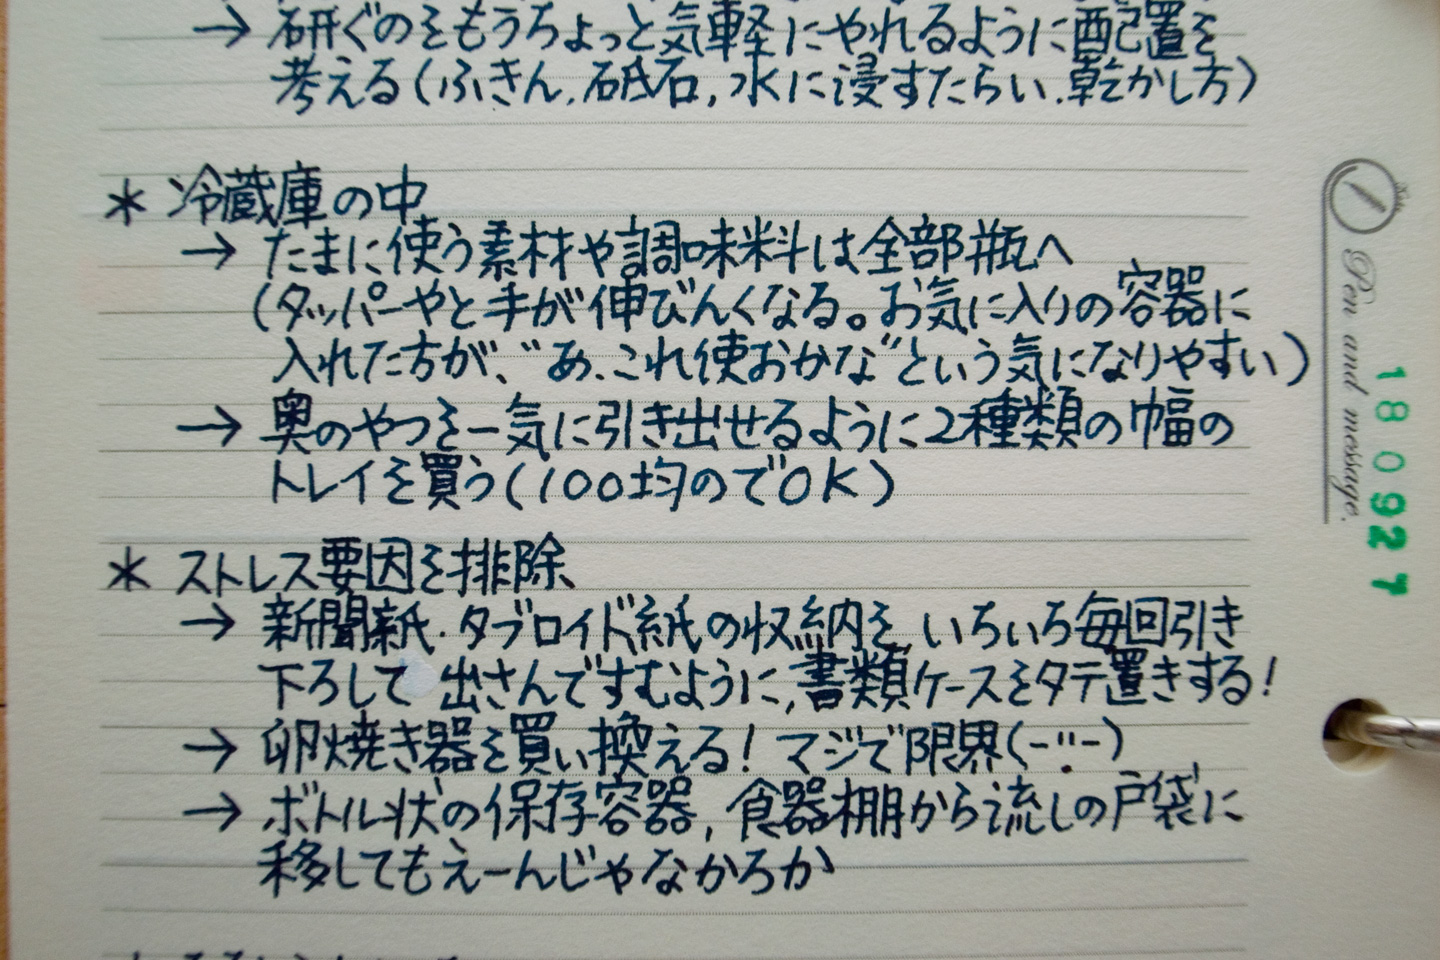 → 研ぐのをもうちょっと気軽にやれるように配置を
考える(ふきん、砥石、水に浸すたらい、乾かし方)
* 冷蔵庫の中
→ たまに使う素材や調味料は全部瓶へ
(タッパーやと手が伸びんくなる。お気に入りの容器に
入れた方が、"あ、これ使おかな"という気になりやすい)
→ 奥のやつを一気に引き出せるように2種類の幅の
トレイを買う(100均のでOK)
* ストレス要因を排除
→ 新聞紙・タブロイド紙の収納を、いちいち毎回引き
下ろして 出さんですむように、書類ケースをタテ置きする!
→ 卵焼き器を買い換える! マジで限界(-"-)
→ ボトル状の保存容器、食器棚から流しの戸袋に
移してもえーんじゃなかろか
Pen and message.
180927